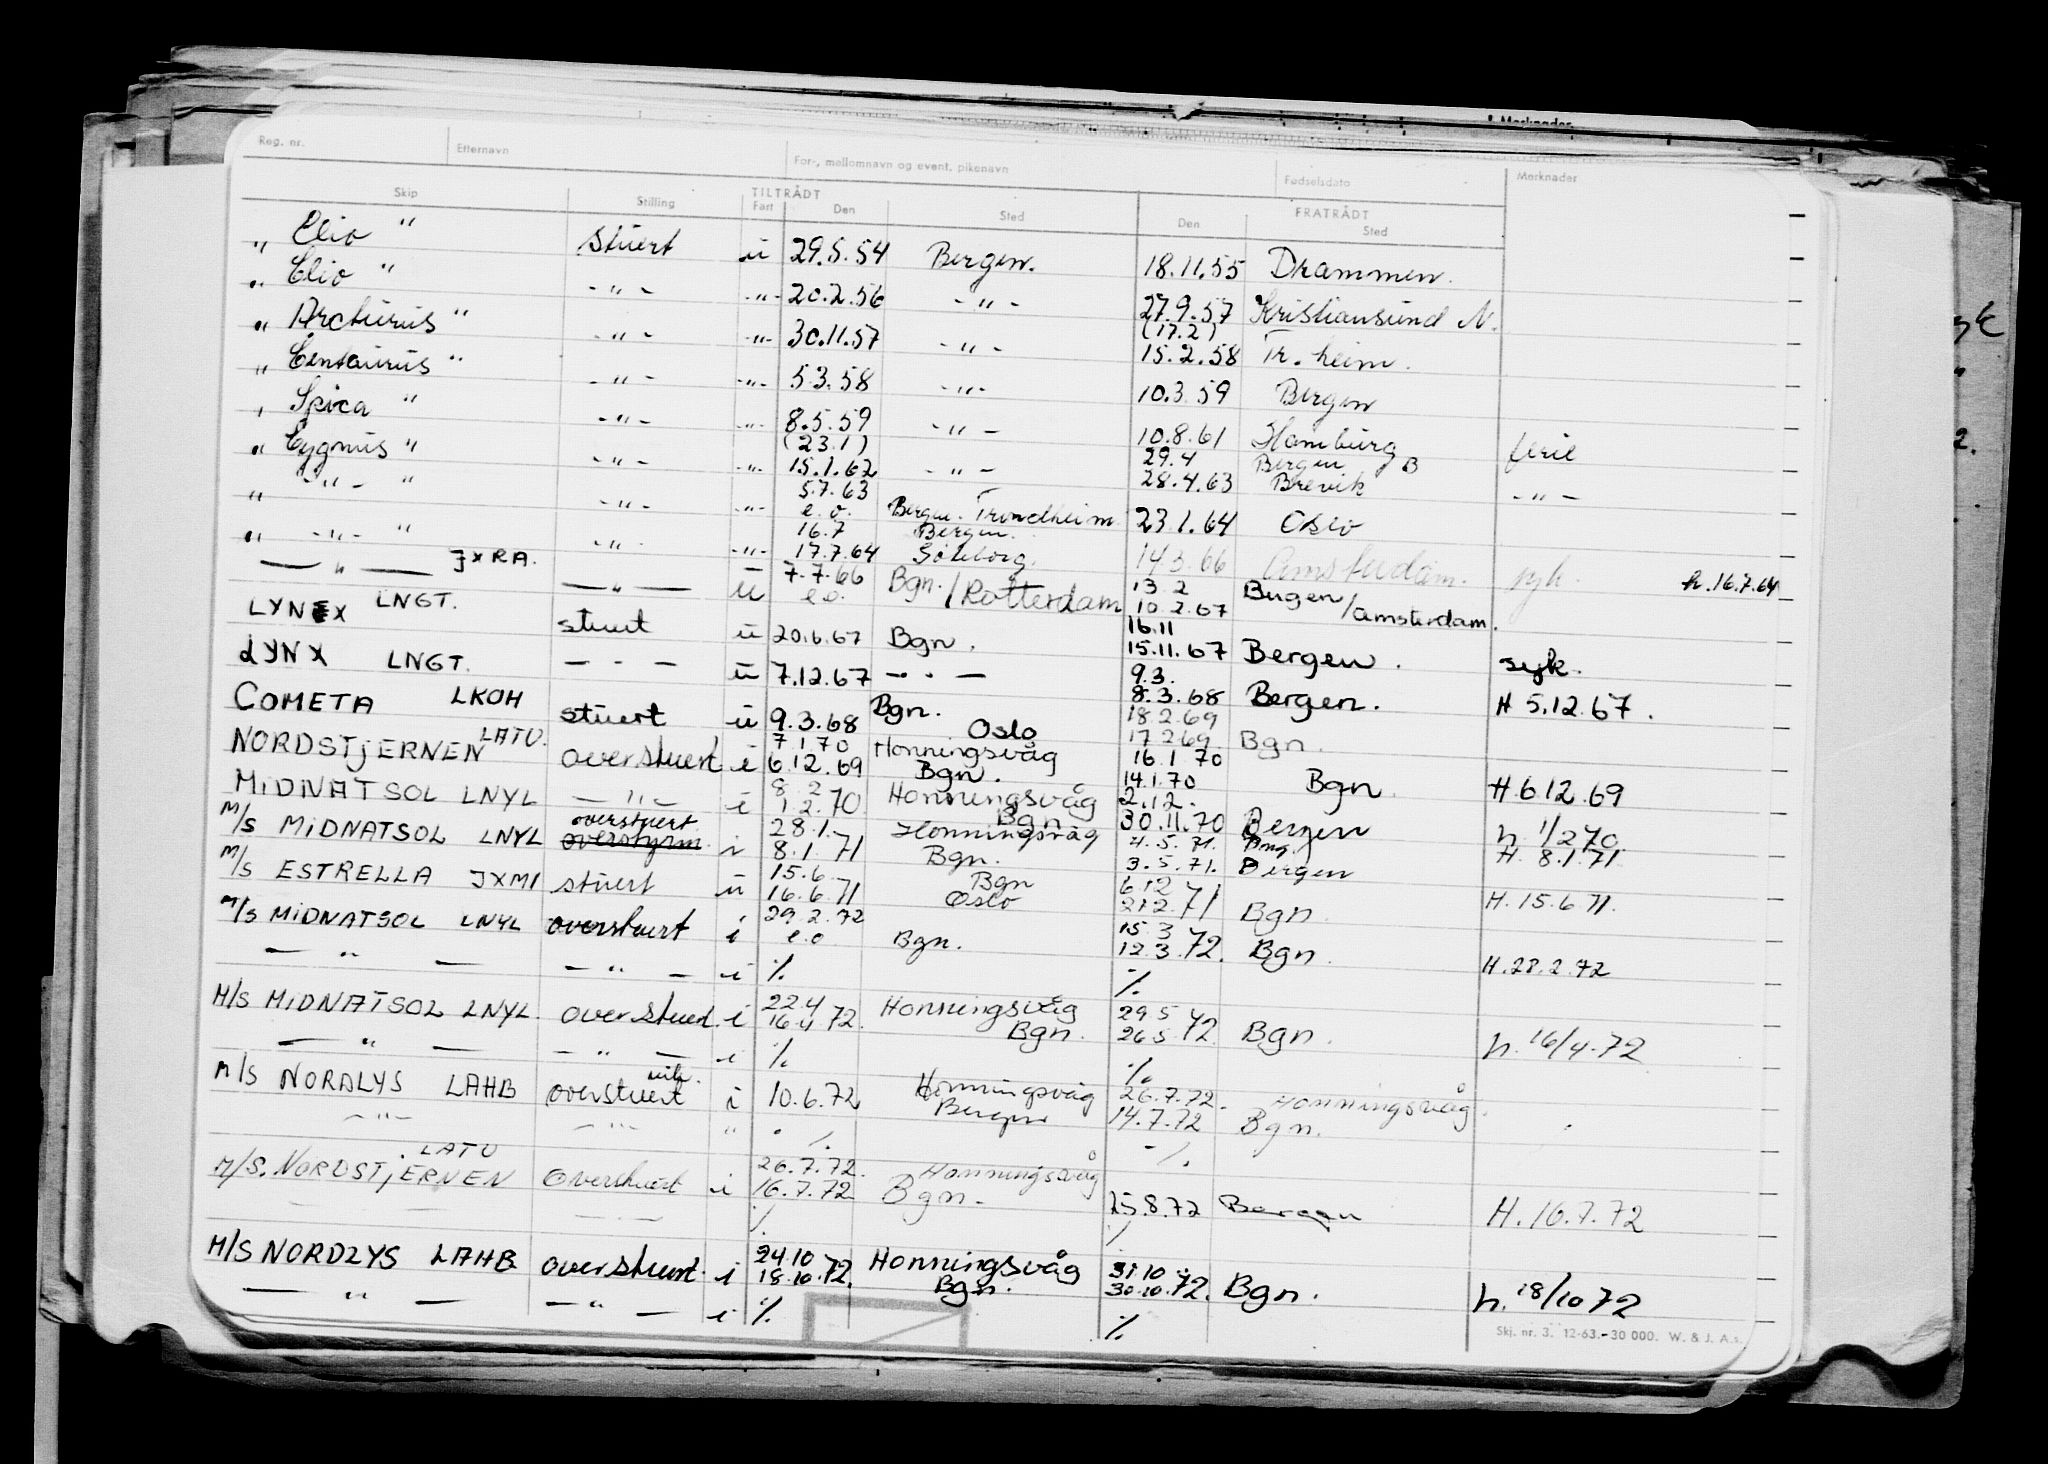 Merknader
Reg. nr. Etternavn For-, mellomnavn og event. pikenavn Fødselsdato Merknader
Skip Stilling TILTRÅDT Fart Den Sted FRATRÅDT Den Sted
„ Clio " stuert u 29.5.54 Bergen. 18.11.55 Drammen.
„ Clio " - " - - " - 20.2.56 - " - 27.9.57 Kristiansund N.
(17.2)
„ Arcturus " - " - - " - 30.11.57 - " - 15.2.58 Tr. heim.
„ Centaurus " - " - - " - 5.3.58 - " - 10.3.59 Bergen
„ Spica " - " - - " - 8.5.59 - " - 10.8.61 Hamburg ferie
(23.1) 29.4 Bergen B
„ Cygnus " - " - - " - 15.1.62 - " - 28.4.63 Brevik - " -
5.7.63
„ - " - " - " - - " - e.o. Bergen. Trondheim 23.1.64 Oslo
16.7 Bergen.
„ - " - " - " - - " - 17.7.64 Göteborg. 14.3.66 Amsterdam. syk. h. 16.7.64
7.7.66 13.2
— " — JXRA. — " — u e.o. Bgn./Rotterdam 10.2.67 Bergen/Amsterdam.
16.11
LYNX LNGT. stuert u 20.6.67 Bgn. 15.11.67 Bergen. syk.
9.3.
LYNX LNGT. — " — u 7.12.67 — " — 8.3.68 Bergen. H 5.12.67.
18.2.69
COMETA LKOH stuert u 9.3.68 Bgn. Oslo 17.2.69. Bgn.
7.1.70 Honningsvåg 16.1.70
NORDSTJERNEN LATU. overstuert i 6.12.69 Bgn. 14.1.70 Bgn. H 6.12.69
8.2 Honningsvåg 2.12.
MIDNATSOL LNYL — " — i 1.2.70 Bgn. 30.11.70 Bergen h. 1/2 70.
28.1. Honningsvåg 4.5.71.
M/S MIDNATSOL LNYL overstuert overstyrm. i 8.1.71 Bgn. 3.5.71. Bergen H. 8.1.71.
15.6. Bgn 6.12
M/S ESTRELLA JXMI stuert u 16.6.71 Oslo 2.12.71 Bgn. H. 15.6.71.
29.2.72 15.3
M/S MIDNATSOL LNYL overstuert i e.o. Bgn. 12.3.72. Bgn. H. 28.2.72
— " — — " — i ./. ./.
22.4 Honningsvåg 29.5
M/S MIDNATSOL LNYL. overstuert. i 16.4.72. Bgn. 26.5.72 Bgn. h. 16/4.72
— " — — " — i ./. ./.
vik. Honningsvåg 26.7.72. Honningsvåg.
M/S NORDLYS LAHB overstuert i 10.6.72 Bergen 14.7.72 Bgn.
- " - - " - " ./. ./.
LATU 26.7.72. Honningsvåg
M/S. NORDSTJERNEN Overstuert i 16.7.72 Bgn. 25.8.72 Bergen H. 16.7.72
— — — — ./. ./.
24.10 Honningsvåg 31.10
M/S NORDLYS LAHB overstuert. i 18.10.72. Bgn. 30.10.72. Bgn. h. 18/10 72
— " — — " — i ./. ./.
Skj. nr. 3. 12-63.–30 000. W. & J. A.s.